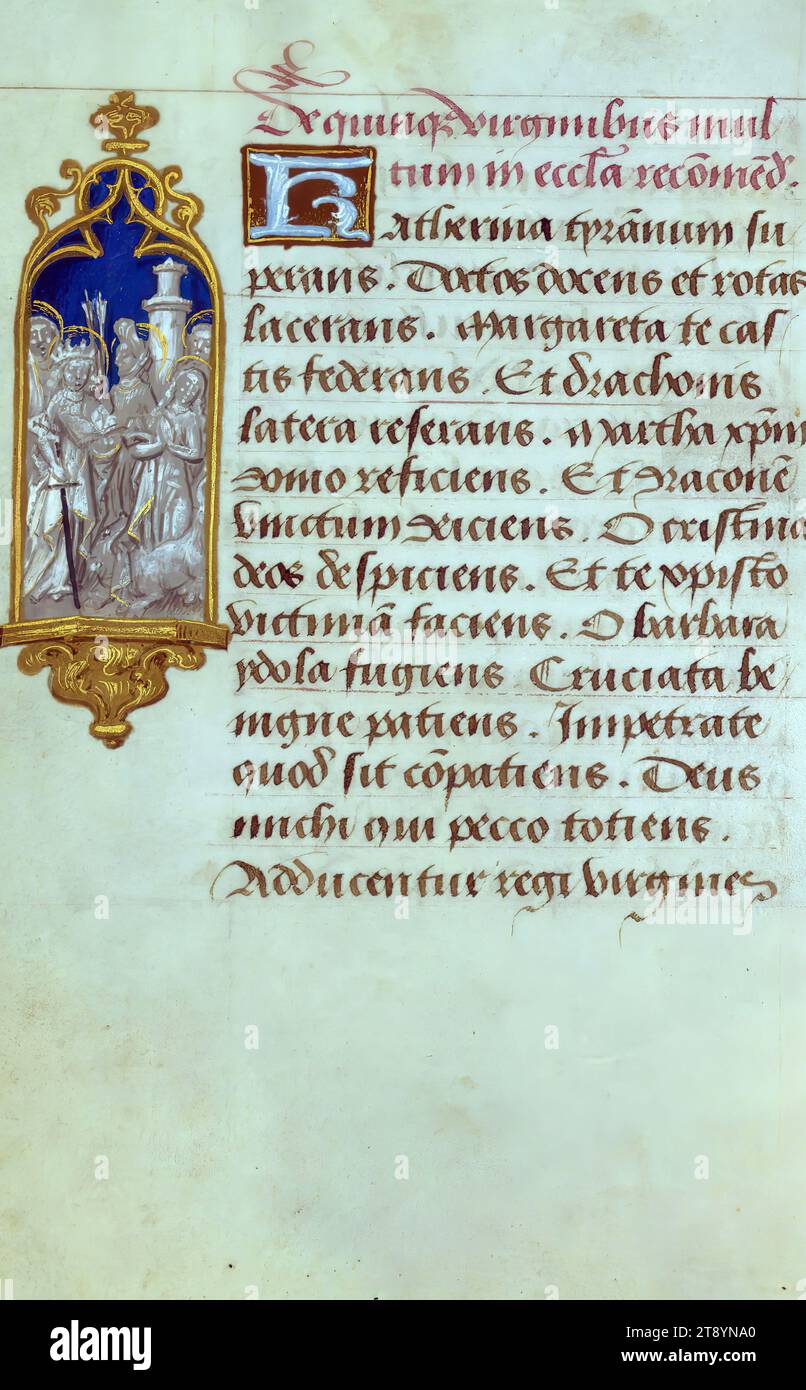 De quinq; virginibus mul
tum in eccl̄a recōmed̄.
Katherina tyrānum su
perans. Doctos docens et rotas
lacerans. Margareta te cas
tis federans. Et drachonis
latera reserans. Martha xp̄m
domo reficiens. Et draconē
vinctum deiciens. O cristina
deos despiciens. Et te xpisto
victimā faciens. O barbara
ydola fugiens. Cruciata be
nigne patiens. Impetrate
quod sit cōpatiens. Deus
michi qui pecco totiens.
Adducentur regi virgines
alamy
Image ID: 2T8YNA0
www.alamy.com